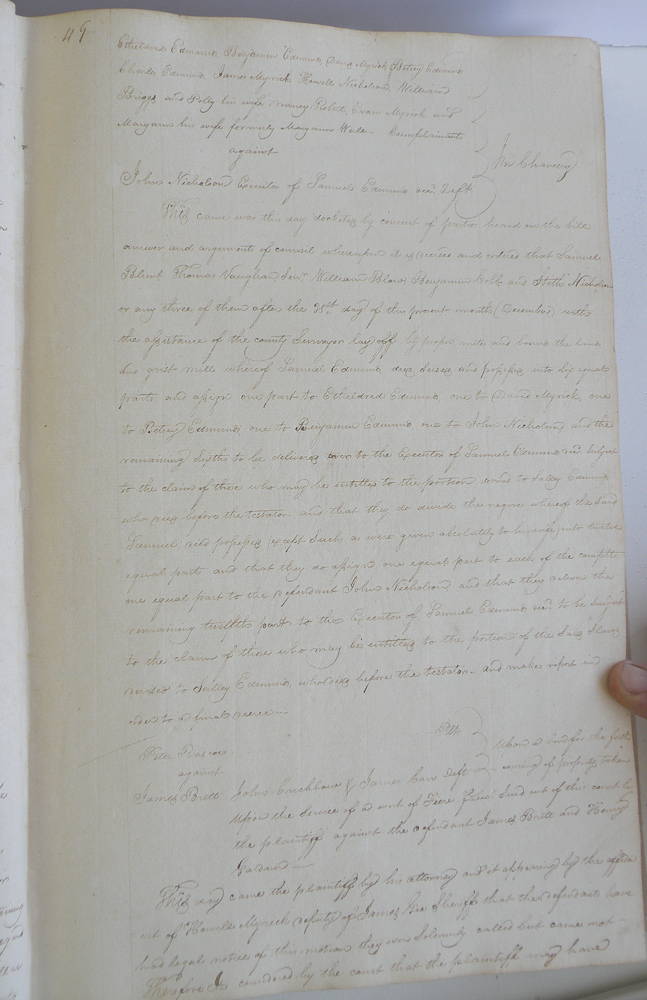 49
Etheldred Edmunds Benjamin Edmunds David Myrick Betsey Edmunds
Charles Edmunds James Myrick Howell Nicholson, William
Briggs and Polly his wife Nancy Evans Myrick and
Maryann his wife formerly Maryann Complainants
against
In Chancery
John Nicholson Executor of Samuel Edmunds decd. Deft.
This cause was this day docketed by consent of parties heard on the bill
answer and arguments of counsel whereupon it is decreed and ordered that Samuel
Blunt Thomas Vaughan Senr. William Blow, Benjamin Cobb and Nicholson
or any three of them after the 25th day of this present month (December) with
the assistance of the county Surveyor lay off by proper metes and bounds the land
and grist mill whereof Samuel Edmunds died seised and possessed into six equal
parts and assign one part to Etheldred Edmunds one to David Myrick, one
to Betsey Edmunds one to Benjamin Edmunds one to John Nicholson and the
remaining sixth to be delivered over to the Executor of Samuel Edmunds decd. subject
to the claim of those who may be entitled to the portion devised to Salley Edmunds
who died before the testator and that they do divide the negroes whereof the said
Samuel died possessed (except such as were given absolutely to ) into twelve
equal parts and that they do assign one equal part to each of the complts.
one equal part to the defendant John Nicholson and that they deliver the
remaining twelfth part to the Executor of Samuel Edmunds decd. to be subject
to the claim of those who may be entitled to the portion of the said Slaves
devised to Salley Edmunds, who died before the testator and make report in
order to a final decree
Peter Pltf.
against
James Britt John Crichlow & James Carr Defts.
Upon a bond for the forth
coming of property taken
upon the service of a writ of Fiere facias sued out of this court by
the plaintiff against the defendant James Britt and Henry
Gardner
This day came the plaintiff by his attorney and it appearing by the affida
vit of Howell Myrick deputy of James Sheriff that the defendants have
had legal notice of this motion they were solemnly called but came not
Therefore it is considered by the court that the plaintiff may have